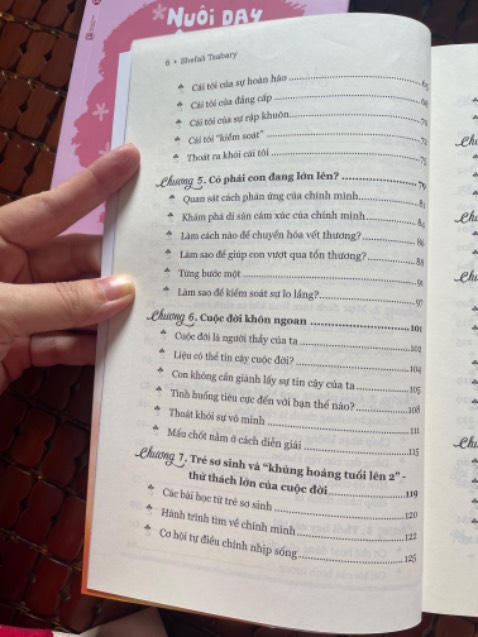 Nuôi DẠY
6 • Shefali Tsabary
Cái tôi của sự hoàn hảo 65
Cái tôi của đẳng cấp 68
Cái tôi của sự rập khuôn 70
Cái tôi "kiểm soát" 72
Thoát ra khỏi cái tôi 75
Chương 5. Có phải con đang lớn lên? 79
Quan sát cách phản ứng của chính mình 81
Khám phá di sản cảm xúc của chính mình 84
Làm cách nào để chuyển hóa vết thương? 86
Làm sao để giúp con vượt qua tổn thương? 88
Từng bước một 91
Làm sao để kiểm soát sự lo lắng? 97
Chương 6. Cuộc đời khôn ngoan 101
Cuộc đời là người thầy của ta 102
Liệu có thể tin cậy cuộc đời? 104
Con không cần giành lấy sự tin cậy của ta 105
Tình huống tiêu cực đến với bạn thế nào? 108
Thoát khỏi sự vô minh 111
Mấu chốt nằm ở cách diễn giải 115
Chương 7. Trẻ sơ sinh và "khủng hoảng tuổi lên 2" -
thử thách lớn của cuộc đời 119
Các bài học từ trẻ sơ sinh 120
Hành trình tìm về chính mình 122
Cơ hội tự điều chỉnh nhịp sống 125